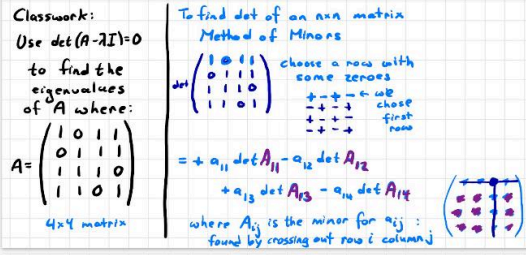 Classwork:
Use det(A-λI)=0
to find the
eigenvalues
of A where:
A= ( 1 0 1 1
0 1 1 1
1 1 1 0
1 1 0 1 )
4x4 matrix
To find det of an nxn matrix
Method of Minors
det ( 1 0 1 1
0 1 1 1
1 1 1 0
1 1 0 1 )
choose a row with
some zeroes
+ - + - ← we
- + - + chose
+ - + - first
- + - + row
= + a₁₁ det A₁₁ - a₁₂ det A₁₂
+ a₁₃ det A₁₃ - a₁₄ det A₁₄
where Aij is the minor for aij :
found by crossing out row i column j